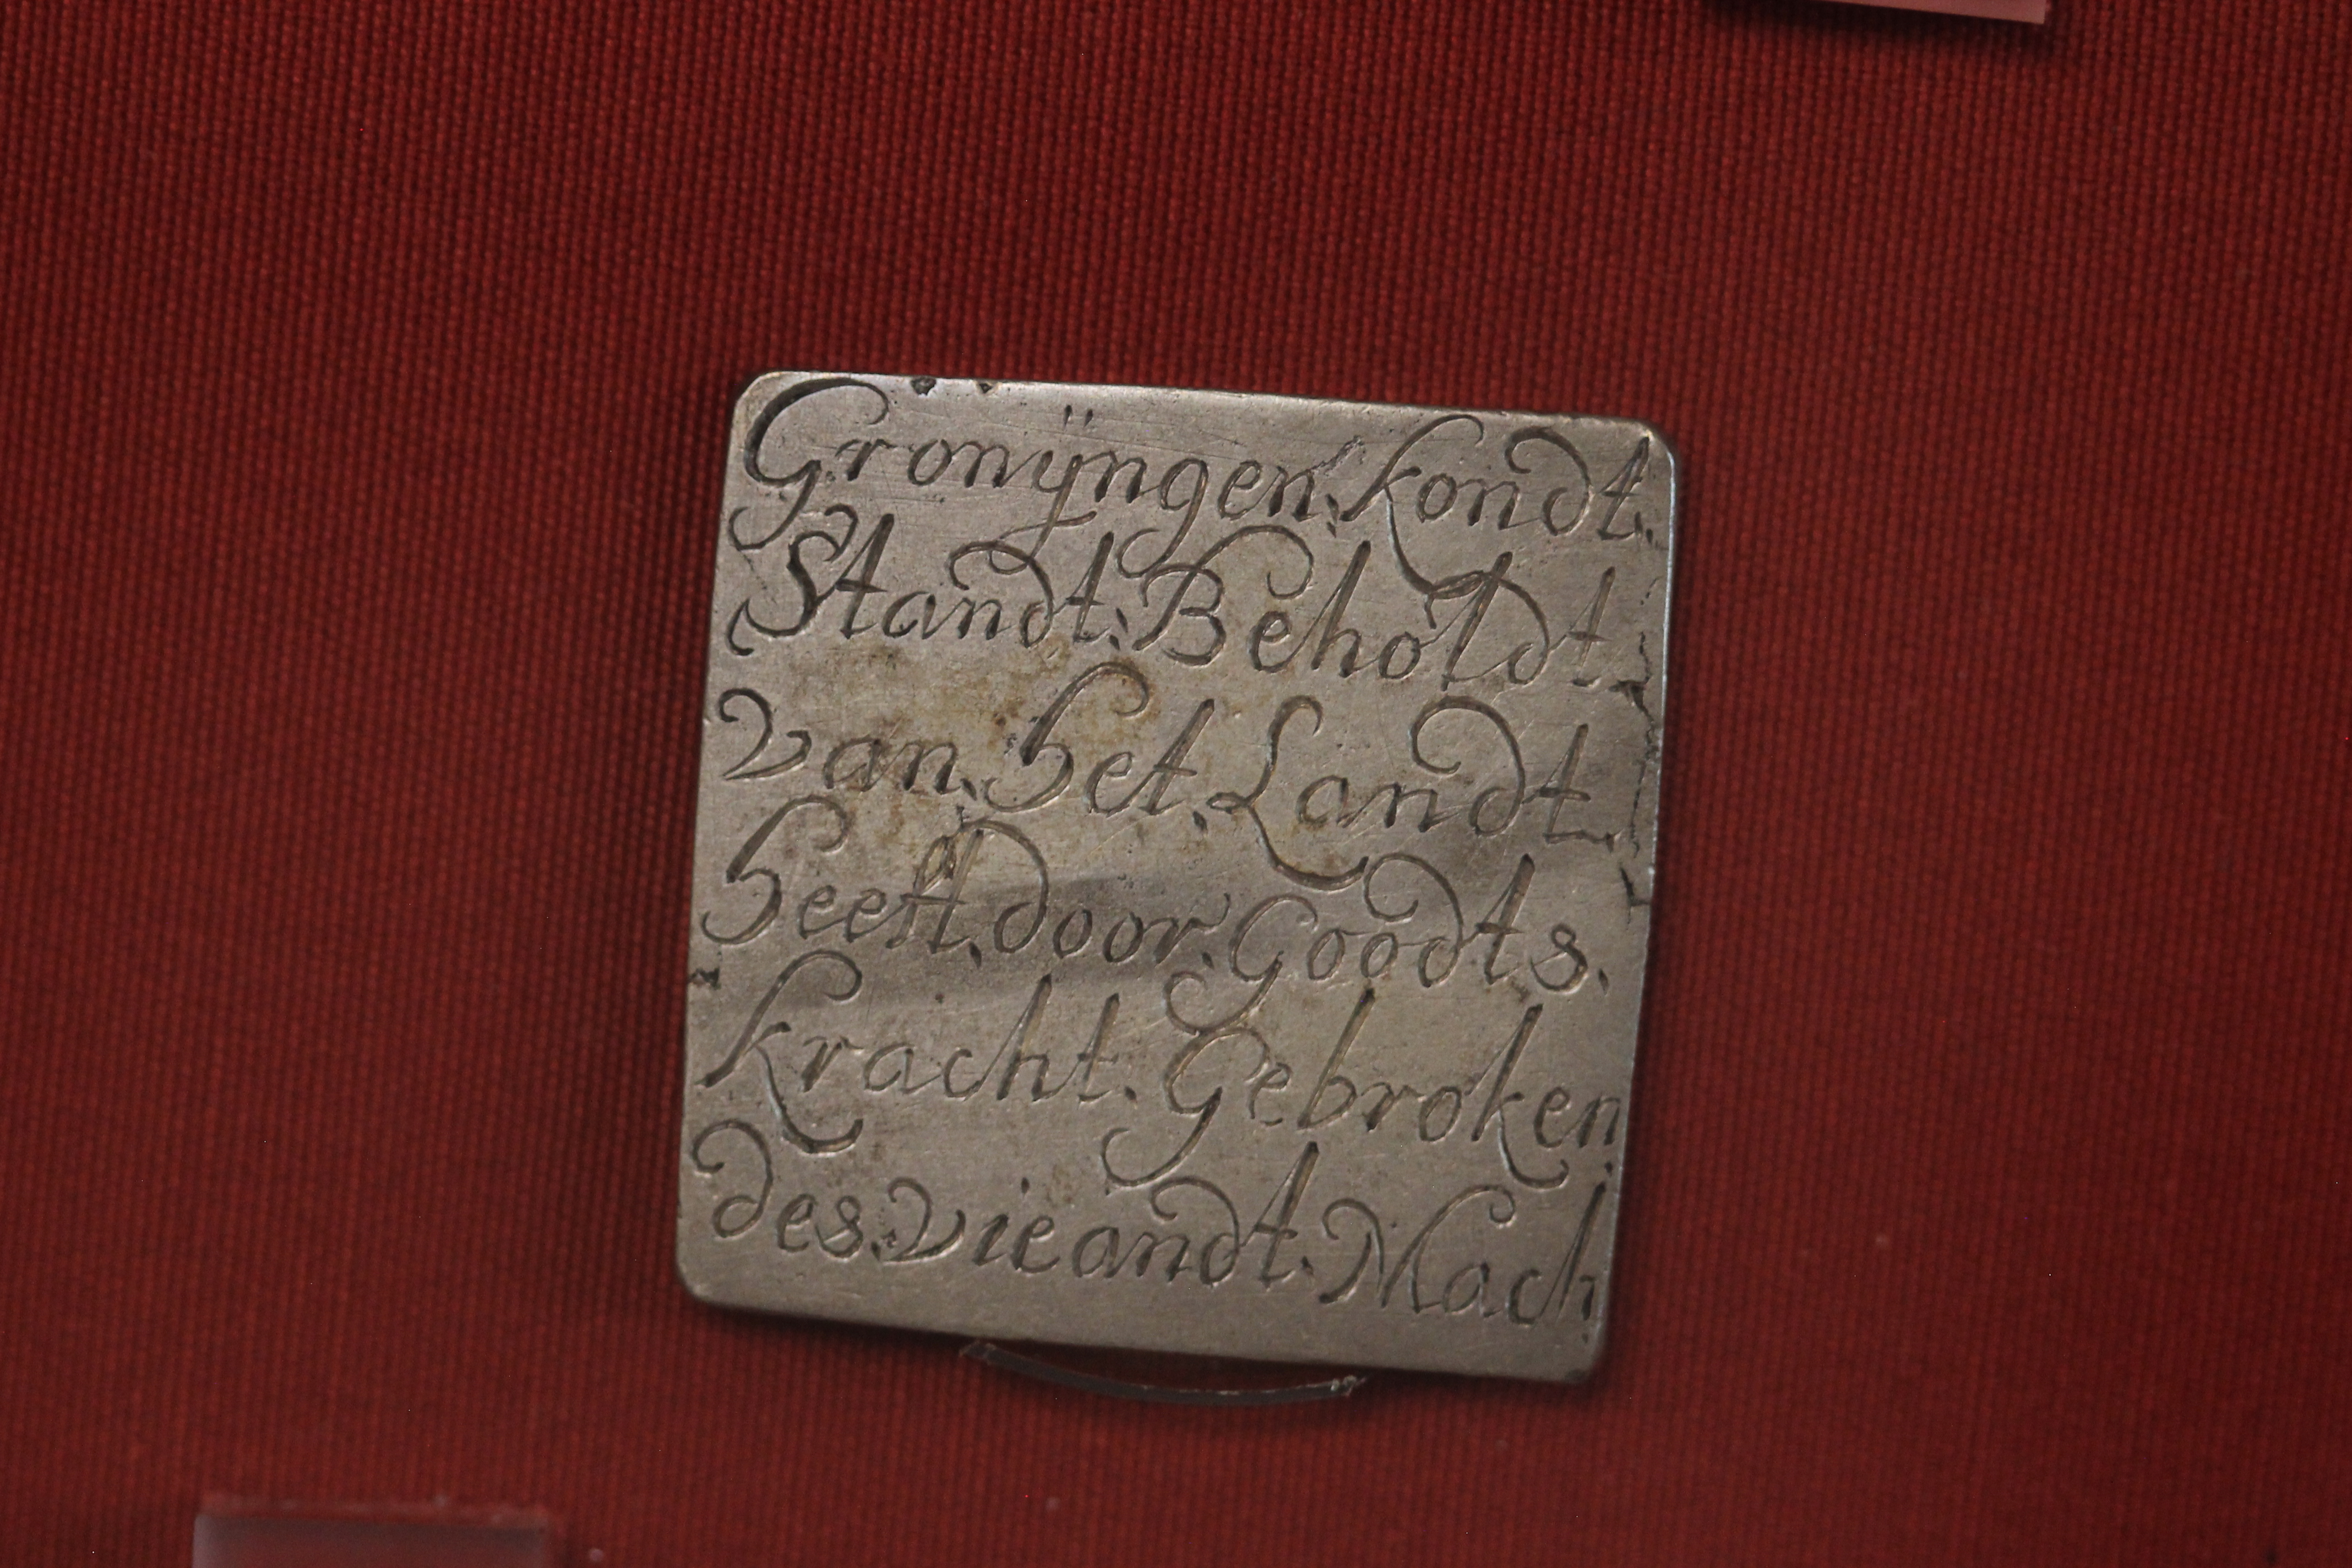 Gronÿngen. kondt.
Standt. Beholdt.
van. het. Landt.
heeft. door. Goodts.
kracht. Gebroken.
des. vieandt. Mach